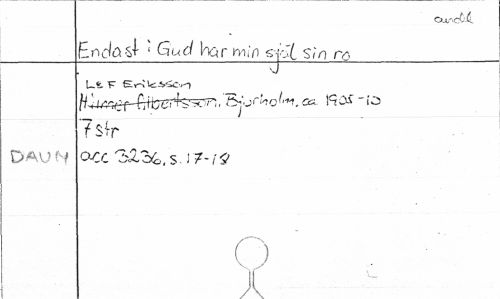 andl
Endast i Gud har min själ sin ro
Lef Eriksson
Hilmer Albertsson, Bjurholm, ca 1905-10
7 str
DAUM acc 3236, s. 17-18